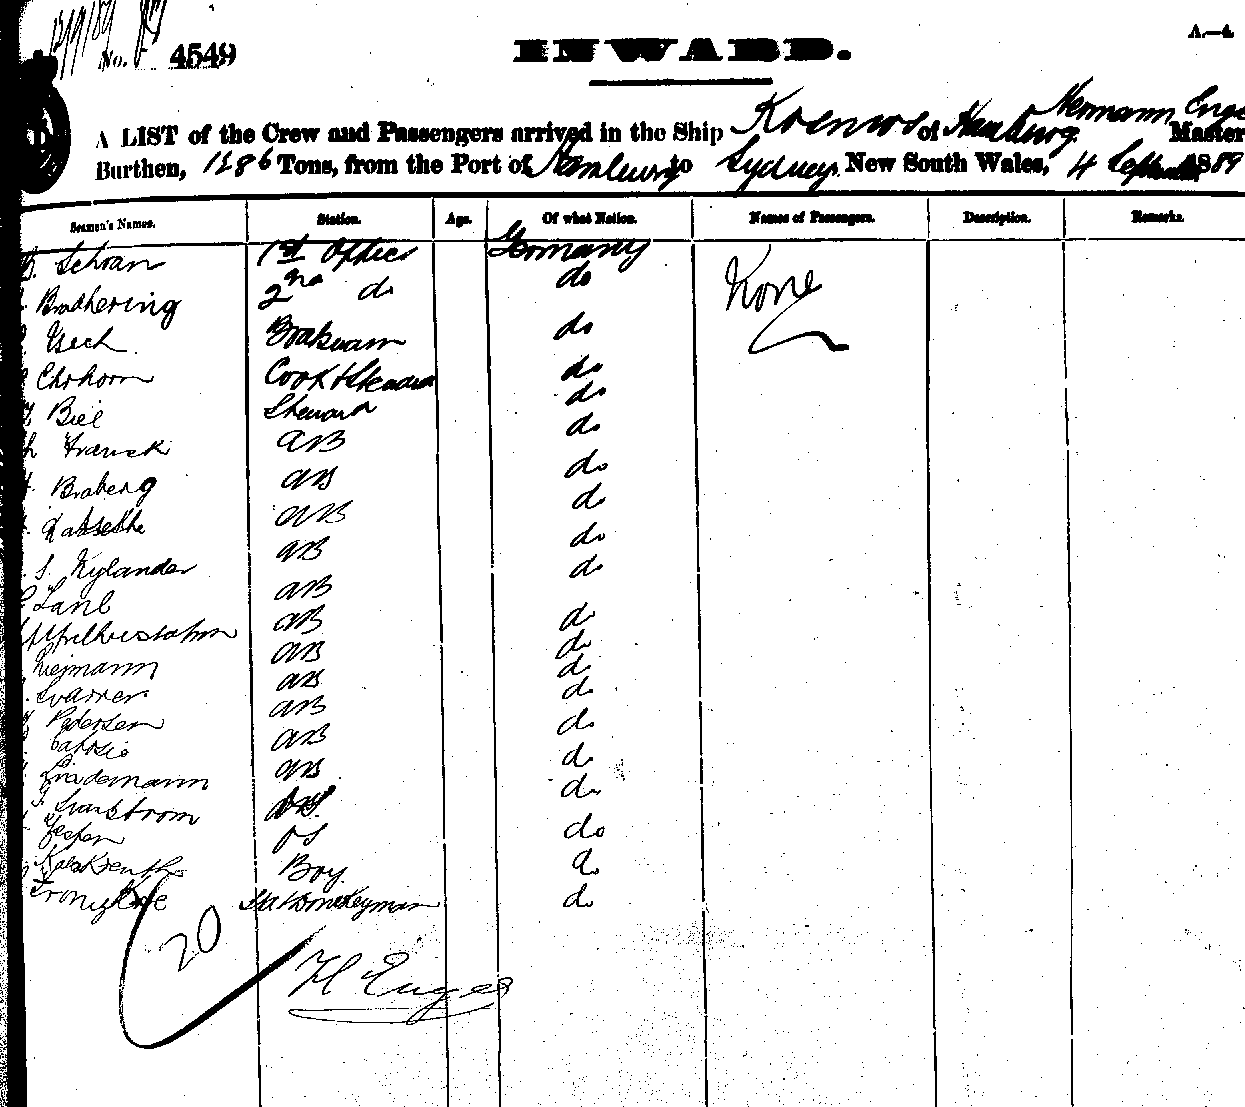 12/9/89
No. 4549
INWARD.
A.—4.
A LIST of the Crew and Passengers arrived in the Ship Kosmos of Hamburg. Hermann Enge Master
Burthen, 1286 Tons, from the Port of Hamburg to Sydney. New South Wales, 4 September 1889
Seamen's Names. Station. Age. Of what Nation. Names of Passengers. Description. Remarks.
Schvan 1st Officer Germany None
Bradhering 2nd do do
do
Ehrhorn Cook & Steward do
Biel Steward do
Franck AB do
Braberg AB do
AB do
S. Nylander AB do
AB do
AB do
Ziejmann AB do
Svarrer AB do
Pedersen AB do
AB do
Lindemann AB do
Svanstrom do
Jesper OS do
Boy. do
Donkeyman do
20
H Enge